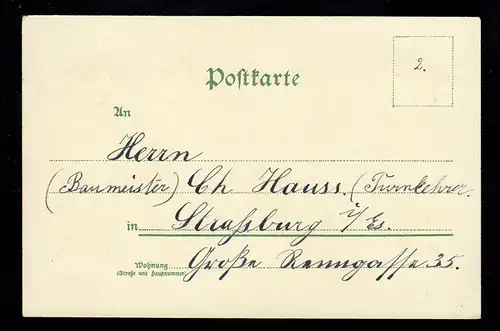 2.
Postkarte
An
Herrn
(Baumeister) Ch Hauss. (Turnlehrer.
in Straßburg i/Es.
Wohnung Große Renngasse 35.
(Straße und Hausnummer)